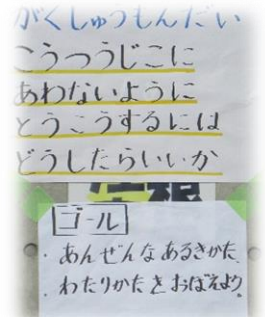 がくしゅうもんだい
こうつうじこに
あわないように
とうこうするには
どうしたらいいか
ゴール
・あんぜんなあるきかた
・わたりかたをおぼえよう。